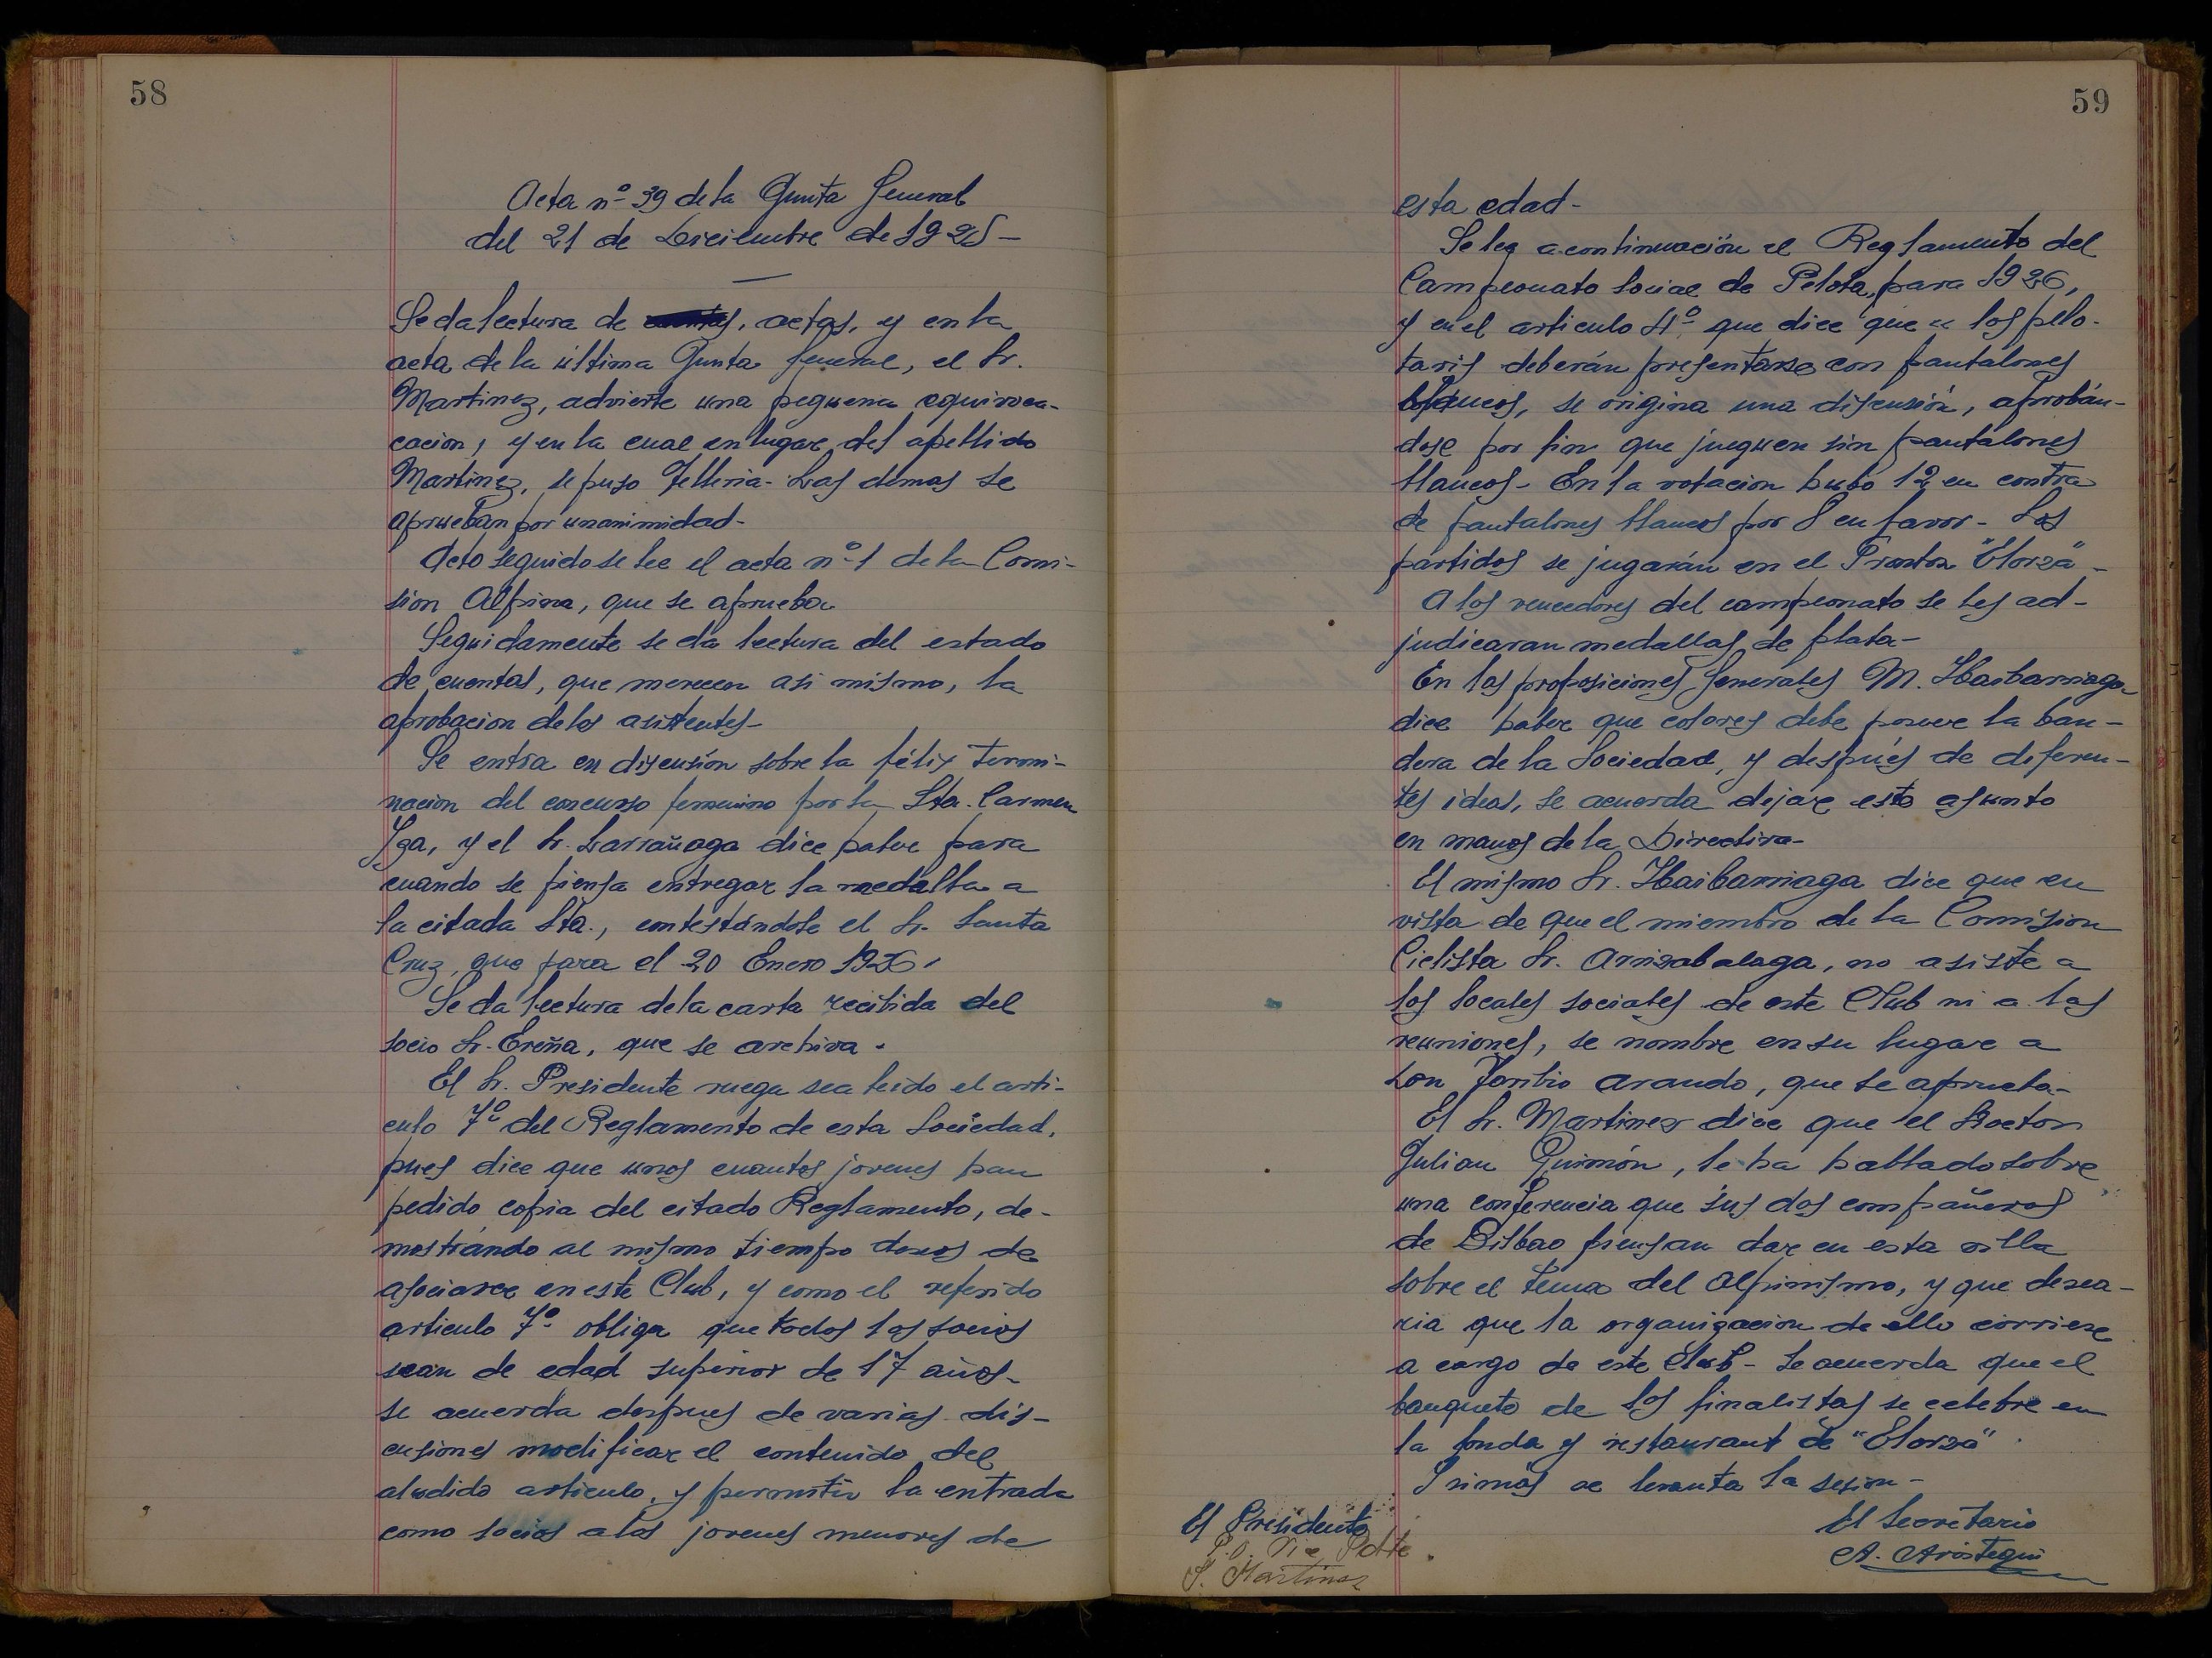 58
Acta nº 39 de la Junta General
del 21 de Diciembre de 1925 -
Se da lectura de actas, y en la
acta de la última Junta General, el Sr.
Martinez, advierte una pequeña equivoca-
cacion, y en la cual en lugar del apellido
Martinez, se puso Telleria - Las demas se
aprueban por unanimidad -
Acto seguido se lee el acta nº 1 de la Comi-
sion Alpina, que se aprueba
Seguidamente se da lectura del estado
de cuentas, que merecen asi mismo, la
aprobacion de los asistentes -
Se entra en discusión sobre la félix termi-
nacion del concurso femenino por la Sta. Carmen
Yga, y el Sr. Larrañaga dice haber para
cuándo se piensa entregar la medalla a
la citada Sta., contestándole el Sr. Santa
Cruz, que para el 20 Enero 1926.
Se da lectura de la carta recibida del
socio Sr. Ereña, que se archiva.
El Sr. Presidente ruega sea leido el arti-
culo 7º del Reglamento de esta Sociedad,
pues dice que unos cuantos jovenes han
pedido copia del citado Reglamento, de-
mostrándo al mismo tiempo deseos de
asociarce en este Club, y como el referido
articulo 7º obliga que todos los socios
sean de edad superior de 17 años -
se acuerda despues de varias dis-
cusiones modificar el contenido del
aludido articulo, y permitir la entrada
como socios a los jovenes menores de
59
esta edad -
Se lee a continuación el Reglamento del
Campeonato Social de Pelota, para 1926,
y en el articulo 4º que dice que " los pelo-
taris deberán presentarse con pantalones
blancos, se origina una discusión, aprobán-
dose por fin que jueguen sin pantalones
blancos - En la votacion hubo 12 en contra
de pantalones blancos por 8 en favor - Los
partidos se jugarán en el Fronton "Elorza" -
A los vencedores del campeonato se les ad-
judicaran medallas de plata -
En las proposiciones generales M. Ybaibarriaga
dice haber que colores debe poseer la ban-
dera de la Sociedad, y después de diferen-
tes ideas, se acuerda dejar esto asunto
en manos de la Directiva -
El mismo Sr. Ybaibarriaga dice que en
vista de que el miembro de la Comision
Ciclista Sr. Arrizabalaga, no asiste a
los locales sociales de este Club ni a las
reuniones, se nombre en su lugar a
Don Toribio Arando, que se aprueba -
El Sr. Martinez dice que el Doctor
Julian Guimón, le ha hablado sobre
una conferencia que sus dos compañeros
de Bilbao piensan dar en esta villa
sobre el tema del Alpinismo, y que desea-
ria que la organizacion de ello corriese
a cargo de este Club - Se acuerda que el
banquete de los finalistas se celebre en
la fonda y restaurant de "Elorza".
Y sin más se levanta la sesion -
El Presidente
P.O. Vice Pdte.
Martinez
El Secretario
A. Arostegui